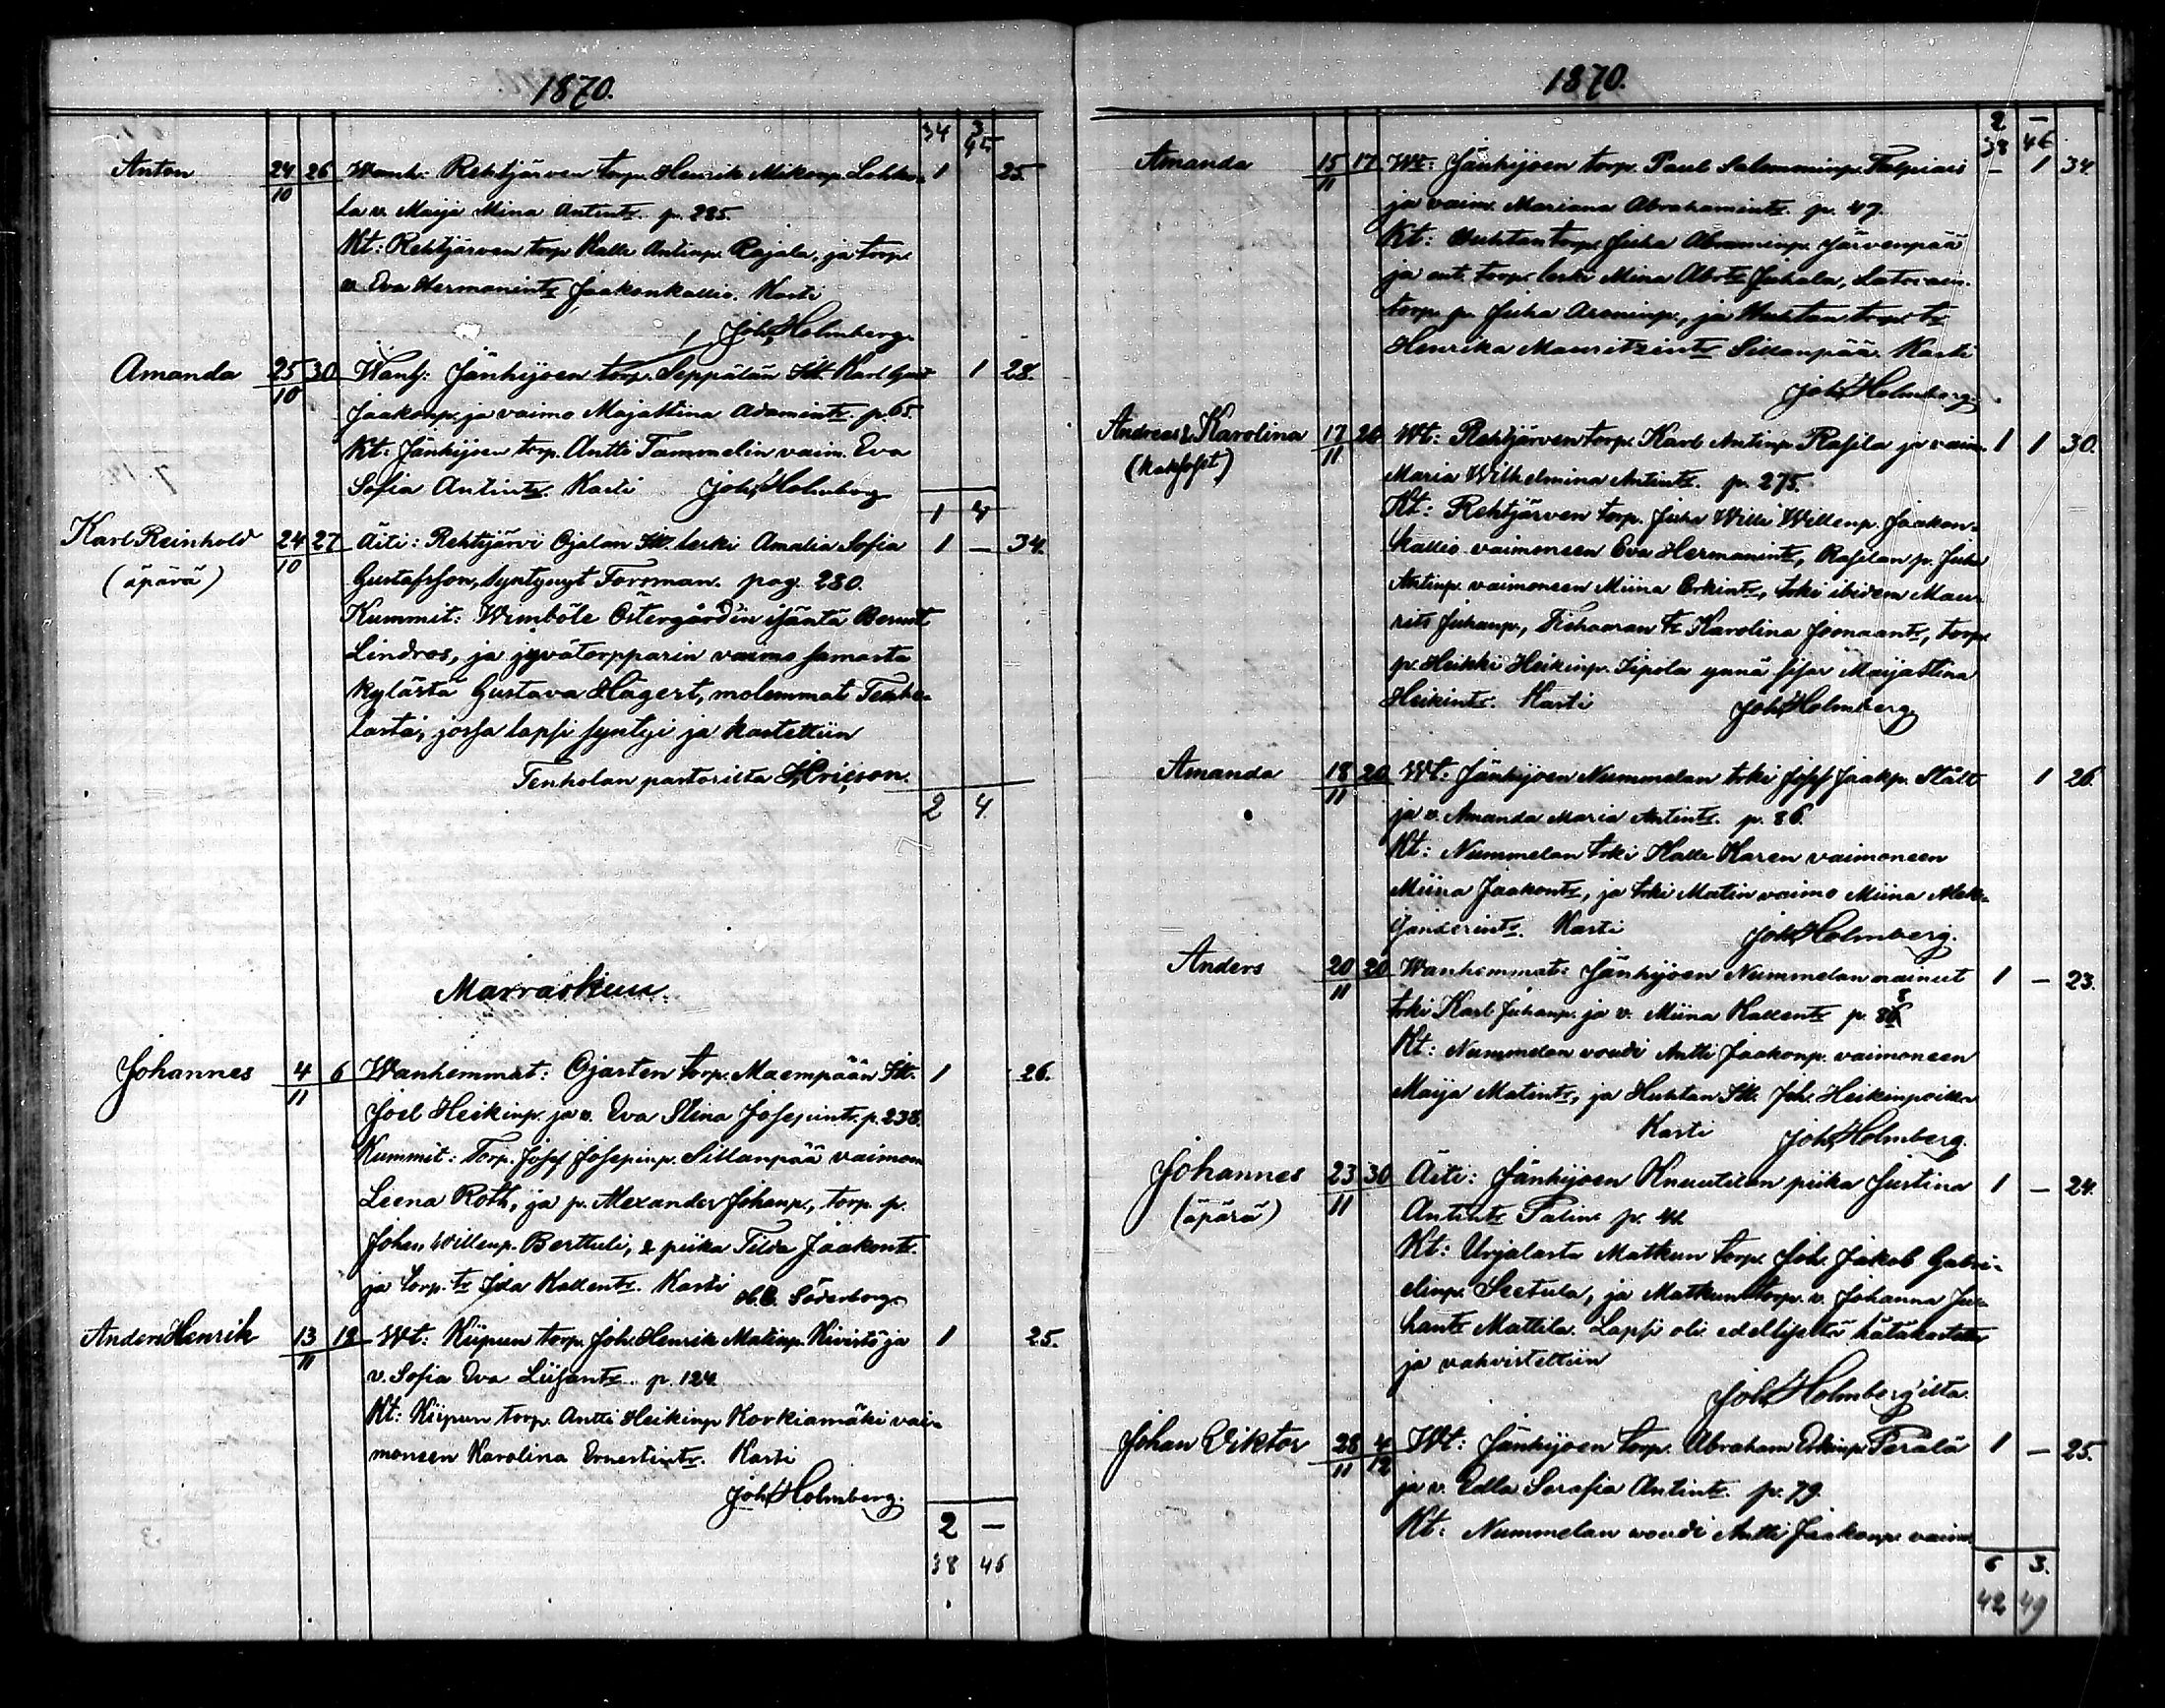 1870.
34 3 45
Anton 24/10 26 Wanh: Rehtijärven torp. Henrik Mikonp. Lohko- 1 25.
la v. Maija Mina Antintr. p. 285.
Kt: Rehtijärven torp Kalle Antinp. Rajala, ja torp.
v. Eva Hermanintr Jaakonkallio. Kasti
Joh. Holmberg.
Amanda 25/10 30 Wanh: Jänhijoen torp. Seppälän Itt. Karl Gust 1 28.
Jaakonp. ja vaimo Majastina Adamintr. p. 65.
Kt: Jänhijoen torp. Antti Tammelin vaim. Eva
Sofia Antintr. Kasti Joh. Holmberg
1 4
Karl Reinhold 24/10 27 Äiti: Rehtijärvi Ojalan Itt. leski Amalia Sofia 1 – 34.
(äpärä) Gustafsson, syntynyt Forsman. pag. 280.
Kummit: Wimböle Östergård'in isäntä Bernt
Lindros, ja jyvätorpparin vaimo samasta
kylästä Gustava Hägert, molemmat Tenho-
lasta, jossa lapsi syntyi ja kastettiin
Tenholan pastorilta
2 4.
Marraskuu.
Johannes 4/11 6 Wanhemmat: Ojasten torp. Maempään Itt. 1 26.
Joel Heikinp. ja v. Eva Stina Josepintr. p. 238.
Kummit: Torp. Josef Josepinp. Sillanpää vaimon
Leena Roth, ja p. Alexander Johanp., torp. p.
Johan Willenp. Berttuli, & piika Tilda Jaakontr.
ja torp. tr Ida Kallentr. Kasti Söderborg.
Anders Henrik 13/11 18 Wt: Kiipun torp. Joh. Henrik Matinp. Kivistö ja 1 25.
v. Sofia Eva Liisantr. p. 124.
Kt: Kiipun torp. Antti Heikinp Korkiamäki vai-
moneen Karolina Ernestintr. Kasti
Joh. Holmberg.
2 –
38 45
1870.
2 –
38 46
Amanda 15/11 17 Wt: Jänhijoen torp. Paul Salomoninp. – 1 34.
ja vaim. Mariana Abrahamintr. p. 47.
Kt: Huhtan torp. Juha Abraminp. Järvenpää
ja ent. torp. leski Mina Abrtr Juhala,
torp. p. Juha Aroninp., ja Huhtan torp. tr
Henrika Mauritzintr Sillanpää. Kasti
Joh. Holmberg.
Andreas & Karolina 17/11 20 Wt: Rehtijärven torp. Karl Antinp Rasila ja vaim. 1 1 30.
Maria Wilhelmina Antintr. p. 275.
Kt: Rehtijärven torp. Juha Wille Willenp. Jaakon-
kallio vaimoneen Eva Hermanintr, Rasilan p. Juha
Antinp. vaimoneen Miina Erkintr, trki ibidem Mau-
rits Juhanp., tr Karolina Joonaantr, torp.
p. Heikki Heikinp. Sipola ynnä sisar Maijastina
Heikintr. Kasti Joh. Holmberg
Amanda 18/11 20 Wt: Jänhijoen Nummelan trki Josef Jaakp. Stålt 1 26.
ja v. Amanda Maria Antintr. p. 86.
Kt: Nummelan trki Kalle Karen vaimoneen
Miina Jaakontr, ja trki Matin vaimo Miina Alek-
sanderintr. Kasti Joh. Holmberg.
Anders 20/11 20 Wanhemmat: Jänhijoen Nummelan nainut 1 – 23.
trki Karl Juhanp. ja v. Miina Kallentr p. 88
Kt: Nummelan voudi Antti Jaakonp. vaimoneen
Maija Matintr, ja Huhtan Itt. Joh. Heikinpoika
Kasti Joh. Holmberg.
Johannes 23/11 30 Äiti: Jänhijoen Knuutilan piika Justina 1 – 24.
(äpärä) Antintr Palin p. 41.
Kt: Urjalasta Matkun torp. Joh. Jakob Gabri-
elinp. Seetula, ja Matkun torp. v. Johanna Ju-
hantr Mattila. Lapsi oli edellisestä hätäkastettu
ja vahvistettiin
Joh. Holmberg'ilta.
Johan Viktor 28/11 4/12 Wt: Jänhijoen torp. Abraham Erkinp Perälä 1 – 25.
ja v. Edla Serafia Antintr. p. 79.
Kt: Nummelan voudi Antti Jaakonp. vaim.
6 3.
42 49